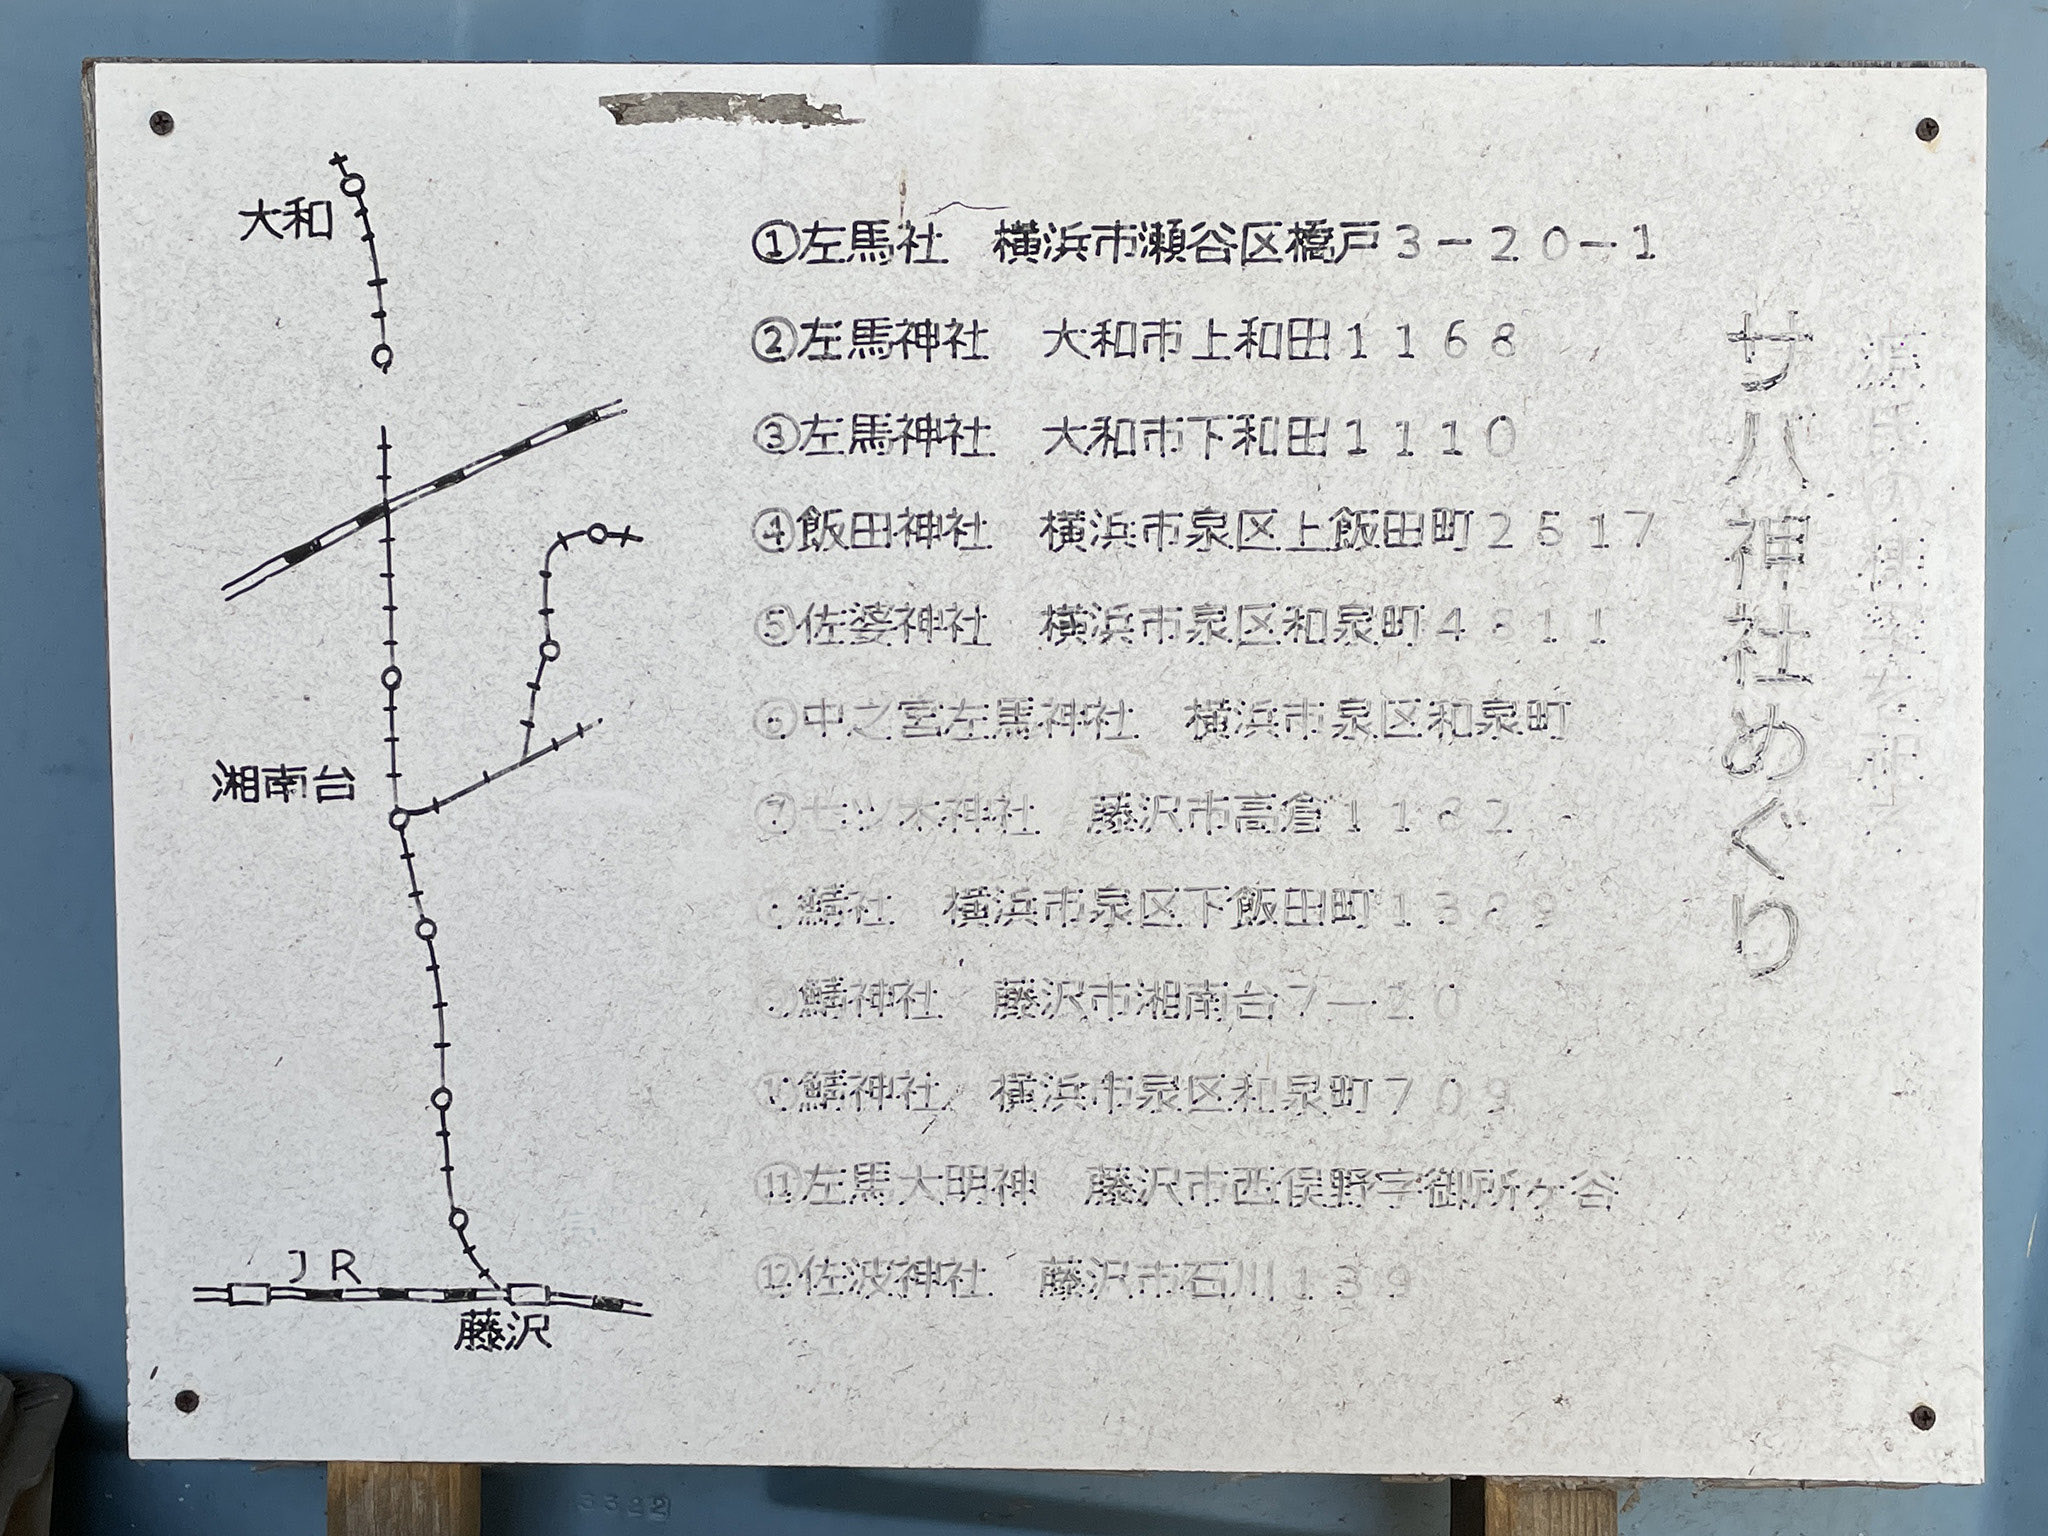 サバ神社めぐり
①左馬社　横浜市瀬谷区橋戸３－２０－１
②左馬神社　大和市上和田１１６８
③左馬神社　大和市下和田１１１０
④飯田神社　横浜市泉区上飯田町２５１７
⑤佐婆神社　横浜市泉区和泉町４８１１
⑥中之宮左馬神社　横浜市泉区和泉町
⑦七ツ木神社　藤沢市高倉１１８２
鯖社　横浜市泉区下飯田町１３８９
鯖神社　藤沢市湘南台７－２０
鯖神社　横浜市泉区和泉町７０９
⑪左馬大明神　藤沢市西俣野字御所ケ谷
⑫佐波神社　藤沢市石川１３９
大和
湘南台
ＪＲ
藤沢